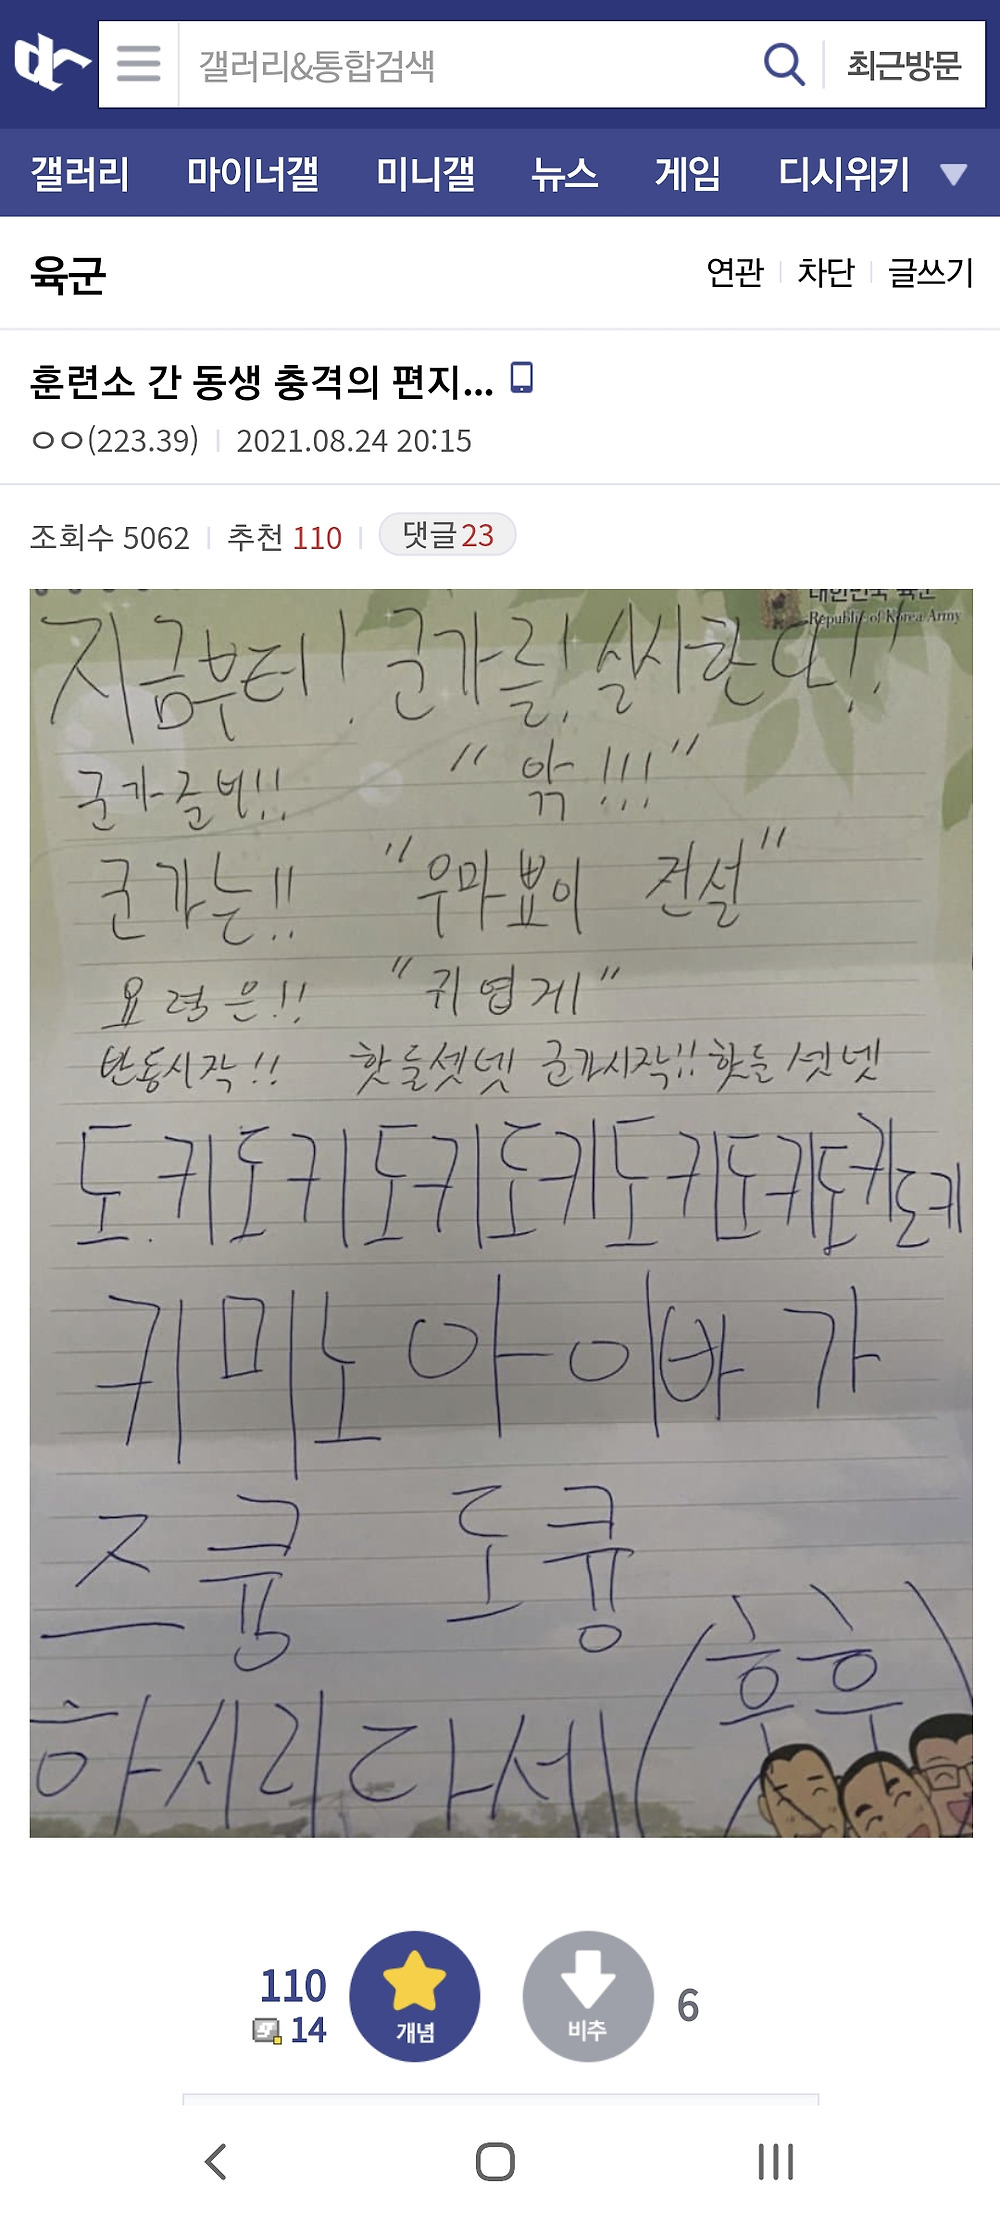 갤러리&통합검색
최근방문
갤러리 마이너갤 미니갤 뉴스 게임 디시위키
육군
연관 차단 글쓰기
훈련소 간 동생 충격의 편지...
ㅇㅇ(223.39) 2021.08.24 20:15
조회수 5062 추천 110 댓글 23
대한민국 육군
Republic of Korea Army
지금부터! 군가를! 실시한다!!
군가준비!! "악!!!"
군가는!! "우마뾰이 전설"
요령은!! "귀엽게"
반동시작!! 핫둘셋넷 군가시작!! 핫둘셋넷
도키도키도키도키도키도키도키도키
키미노 아이바가
즈큥 도큥
하시리다세 (후후)
110
14
개념
비추
6